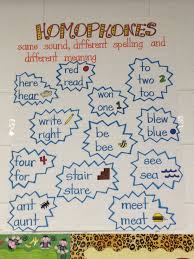 HOMOPHONES
same sound, different spelling and
different meaning
here
hear
red
read
to
two
too
won
one 1
blew
blue
write
right
be
bee
four 4
for
stair
stare
see
sea
ant
aunt
meet
meat